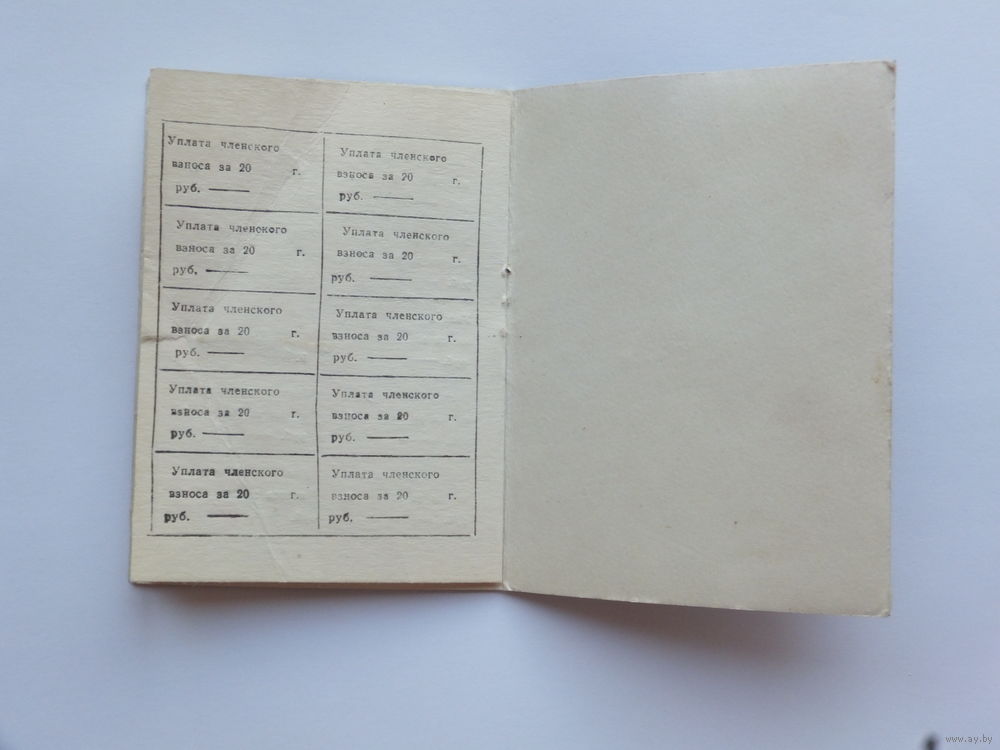 Уплата членского
взноса за 20 г.
руб. ——
Уплата членского
взноса за 20 г.
руб. ——
Уплата членского
взноса за 20 г.
руб. ——
Уплата членского
взноса за 20 г.
руб. ——
Уплата членского
взноса за 20 г.
руб. ——
Уплата членского
взноса за 20 г.
руб. ——
Уплата членского
взноса за 20 г.
руб. ——
Уплата членского
взноса за 20 г.
руб. ——
Уплата членского
взноса за 20 г.
руб. ——
Уплата членского
взноса за 20 г.
руб. ——
www.ay.by